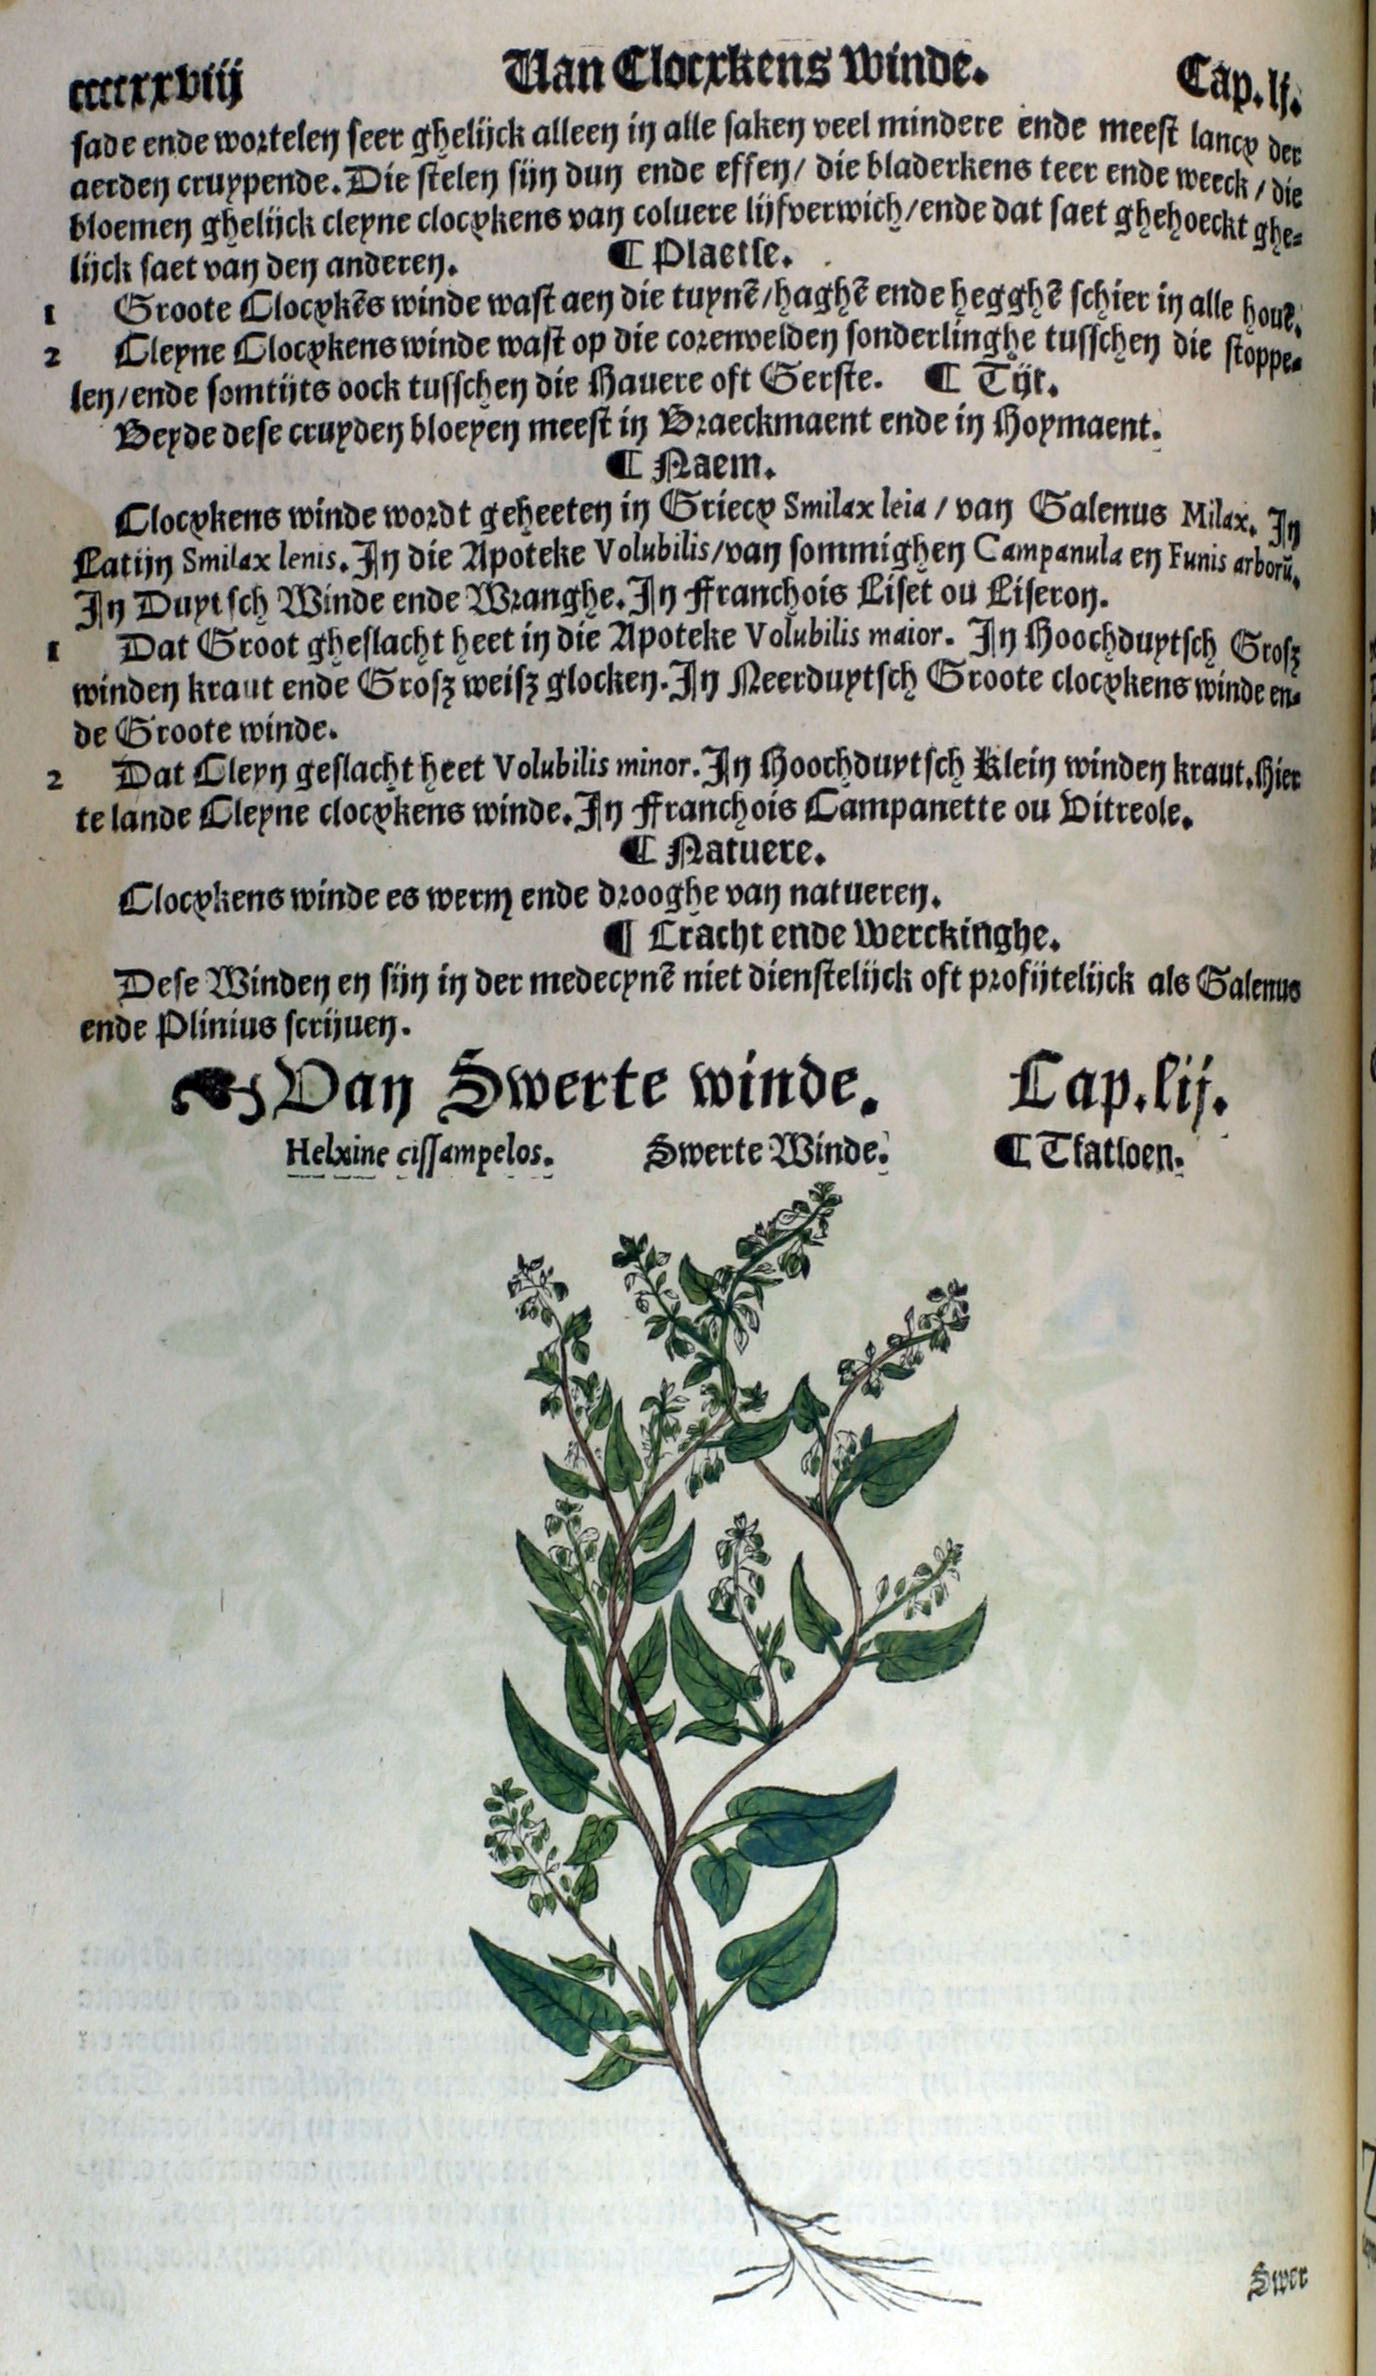 ccccxxviij Van Clocxkens winde. Cap. lj.
sade ende wortelen seer ghelijck alleen in alle saken veel mindere ende meest lancx der
aerden cruypende. Die stelen sijn dun ende effen/ die bladerkens teer ende weeck/ die
bloemen ghelijck cleyne clocxkens van coluere lijfverwich/ende dat saet ghehoeckt ghe-
lijck saet van den anderen. ¶ Plaetse.
1 Groote Clocxkēs winde wast aen die tuynē/haghē ende hegghē schier in alle houē.
2 Cleyne Clocxkens winde wast op die corenvelden sonderlinghe tusschen die stoppe-
len/ende somtijts oock tusschen die Hauere oft Gerste. ¶ Tijt.
Beyde dese cruyden bloeyen meest in Braeckmaent ende in Hoymaent.
¶ Naem.
Clocxkens winde wordt geheeten in Griecx Smilax leia / van Galenus Milax. In
Latijn Smilax lenis. In die Apoteke Volubilis/van sommighen Campanula en Funis arborū.
In Duytsch Winde ende Wranghe. In Franchois Liset ou Liseron.
1 Dat Groot gheslacht heet in die Apoteke Volubilis maior. In Hoochduytsch Grosz
winden kraut ende Grosz weisz glocken. In Neerduytsch Groote clocxkens winde en-
de Groote winde.
2 Dat Cleyn geslacht heet Volubilis minor. In Hoochduytsch Klein winden kraut. Hier
te lande Cleyne clocxkens winde. In Franchois Campanette ou Vitreole.
¶ Natuere.
Clocxkens winde es werm ende drooghe van natueren.
¶ Cracht ende Werckinghe.
Dese Winden en sijn in der medecynē niet dienstelijck oft profijtelijck als Galenus
ende Plinius scrijuen.
☙ Van Swerte winde. Cap. lij.
Helxine cissampelos. Swerte Winde. ¶ Tfatsoen.
Swer